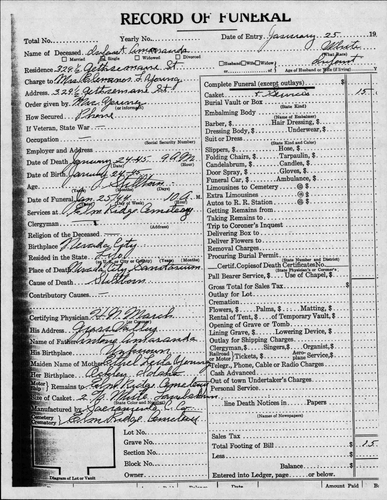 RECORD OF FUNERAL
Total No. Yearly No. Date of Entry January 25 19
Name of Deceased Infant White
Married Single Widowed Divorced (What Race)
Residence 328½ Gethsemane St Husband/Wife/Widow Infant
Age of Husband or Wife (if living) Years
Charge to Mrs. Young
Address 329½ Gethsemane St
Order given by Mrs Young
How Secured Phone
If Veteran, State War
Occupation
Employer and Address
Date of Death January 24-45 9 A.M.
Date of Birth January 24-45
Age Stillborn
Date of Funeral Jan 25/45 10 A. M.
Services at Elm Ridge Cemetery
Clergyman (Address)
Religion of the Deceased
Birthplace Nevada City
Resided in the State Life
Place of Death Nevada City Sanatorium
Cause of Death Stillborn
Contributory Causes
Certifying Physician H. N. March
His Address Grass Valley
Name of Father
His Birthplace Unknown
Maiden Name of Mother Young
Her Birthplace Idaho
Motor Ship Remains to Elm Ridge Cemetery
Size of Casket 2 ft White
Manufactured by Sacramento
Cemetery Crematory Elm Ridge Cemetery
Diagram of Lot or Vault
Lot No.
Grave No.
Section No.
Block No.
Owner
Complete Funeral (except outlays) $
Casket + Service 15
Burial Vault or Box
(State Kind)
Embalming Body
(Name of Embalmer)
Barber, Hair Dressing, $
Dressing Body, $ Underwear, $
Suit or Dress
(State Kind and Color)
Slippers, $ Hose, $
Folding Chairs, $ Tarpaulin, $
Candelabrum, $ Candles, $
Door Spray, $ Gloves, $
Funeral Car, $ Ambulance, $
Limousines to Cemetery @ $
Extra Limousines @ $
Autos to R. R. Station @ $
Getting Remains from
Taking Remains to
Trip to Coroner's Inquest
Delivering Box to
Deliver Flowers to
Removal Charges
Procuring Burial Permit
Certif. Copies of Death Certificates No.
(State Physician's or Coroner's)
Pall Bearer Service, $ Use of Chapel, $
Gross Total for Sales Tax $
Outlay for Lot
Cremation
Flowers, $ Palms, $ Matting, $
Rental of Tent, $ of Temporary Vault, $
Opening of Grave or Tomb
Lining Grave, $ Lowering Device, $
Outlay for Shipping Charges
Clergyman, $ Singers, $ Organist, $
Railroad or Motor Tickets, $ Aeroplane Service, $
Telegr., Phone, Cable or Radio Charges
Cash Advanced
Out of town Undertaker's Charges
Personal Service
line Death Notices in Papers
(Name of Newspapers)
Sales Tax
Total Footing of Bill $ 15
Less $
Balance $
Entered into Ledger, page or below.
Amount Paid